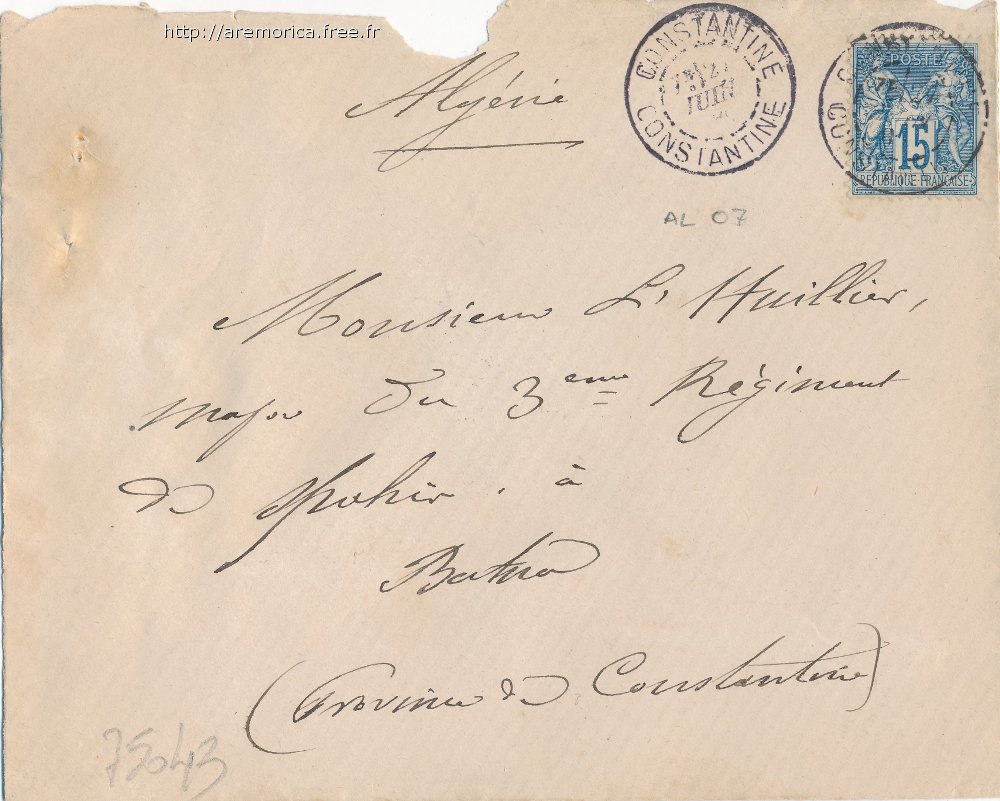 http://aremorica.free.fr
Algérie
CONSTANTINE
JUIN
CONSTANTINE
POSTE
15
REPUBLIQUE FRANÇAISE
AL 07
Monsieur L'Huillier,
major du 3eme Régiment
de Spahis, à
Batna
(Province de Constantine)
75043